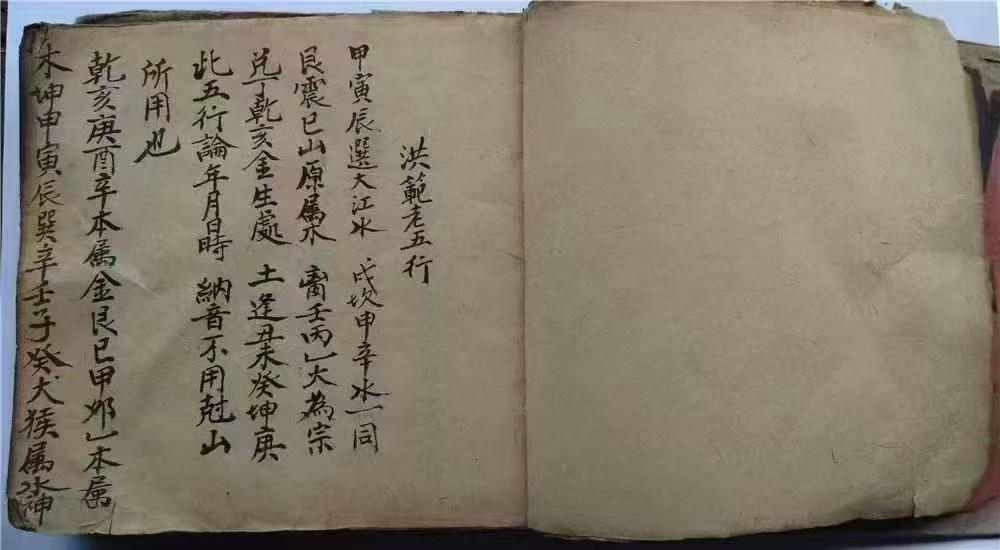 洪範老五行
甲寅辰選大江水 戊坎申辛水一同
艮震巳山原属木 离壬丙乙火為宗
兑丁乾亥金生處 土逢丑未癸坤庚
此五行論年月日時 納音不用尅山
所用也
乾亥庚酉辛本属金艮巳甲卯乙本属
木坤申寅辰巽辛壬子癸犬猴属水神